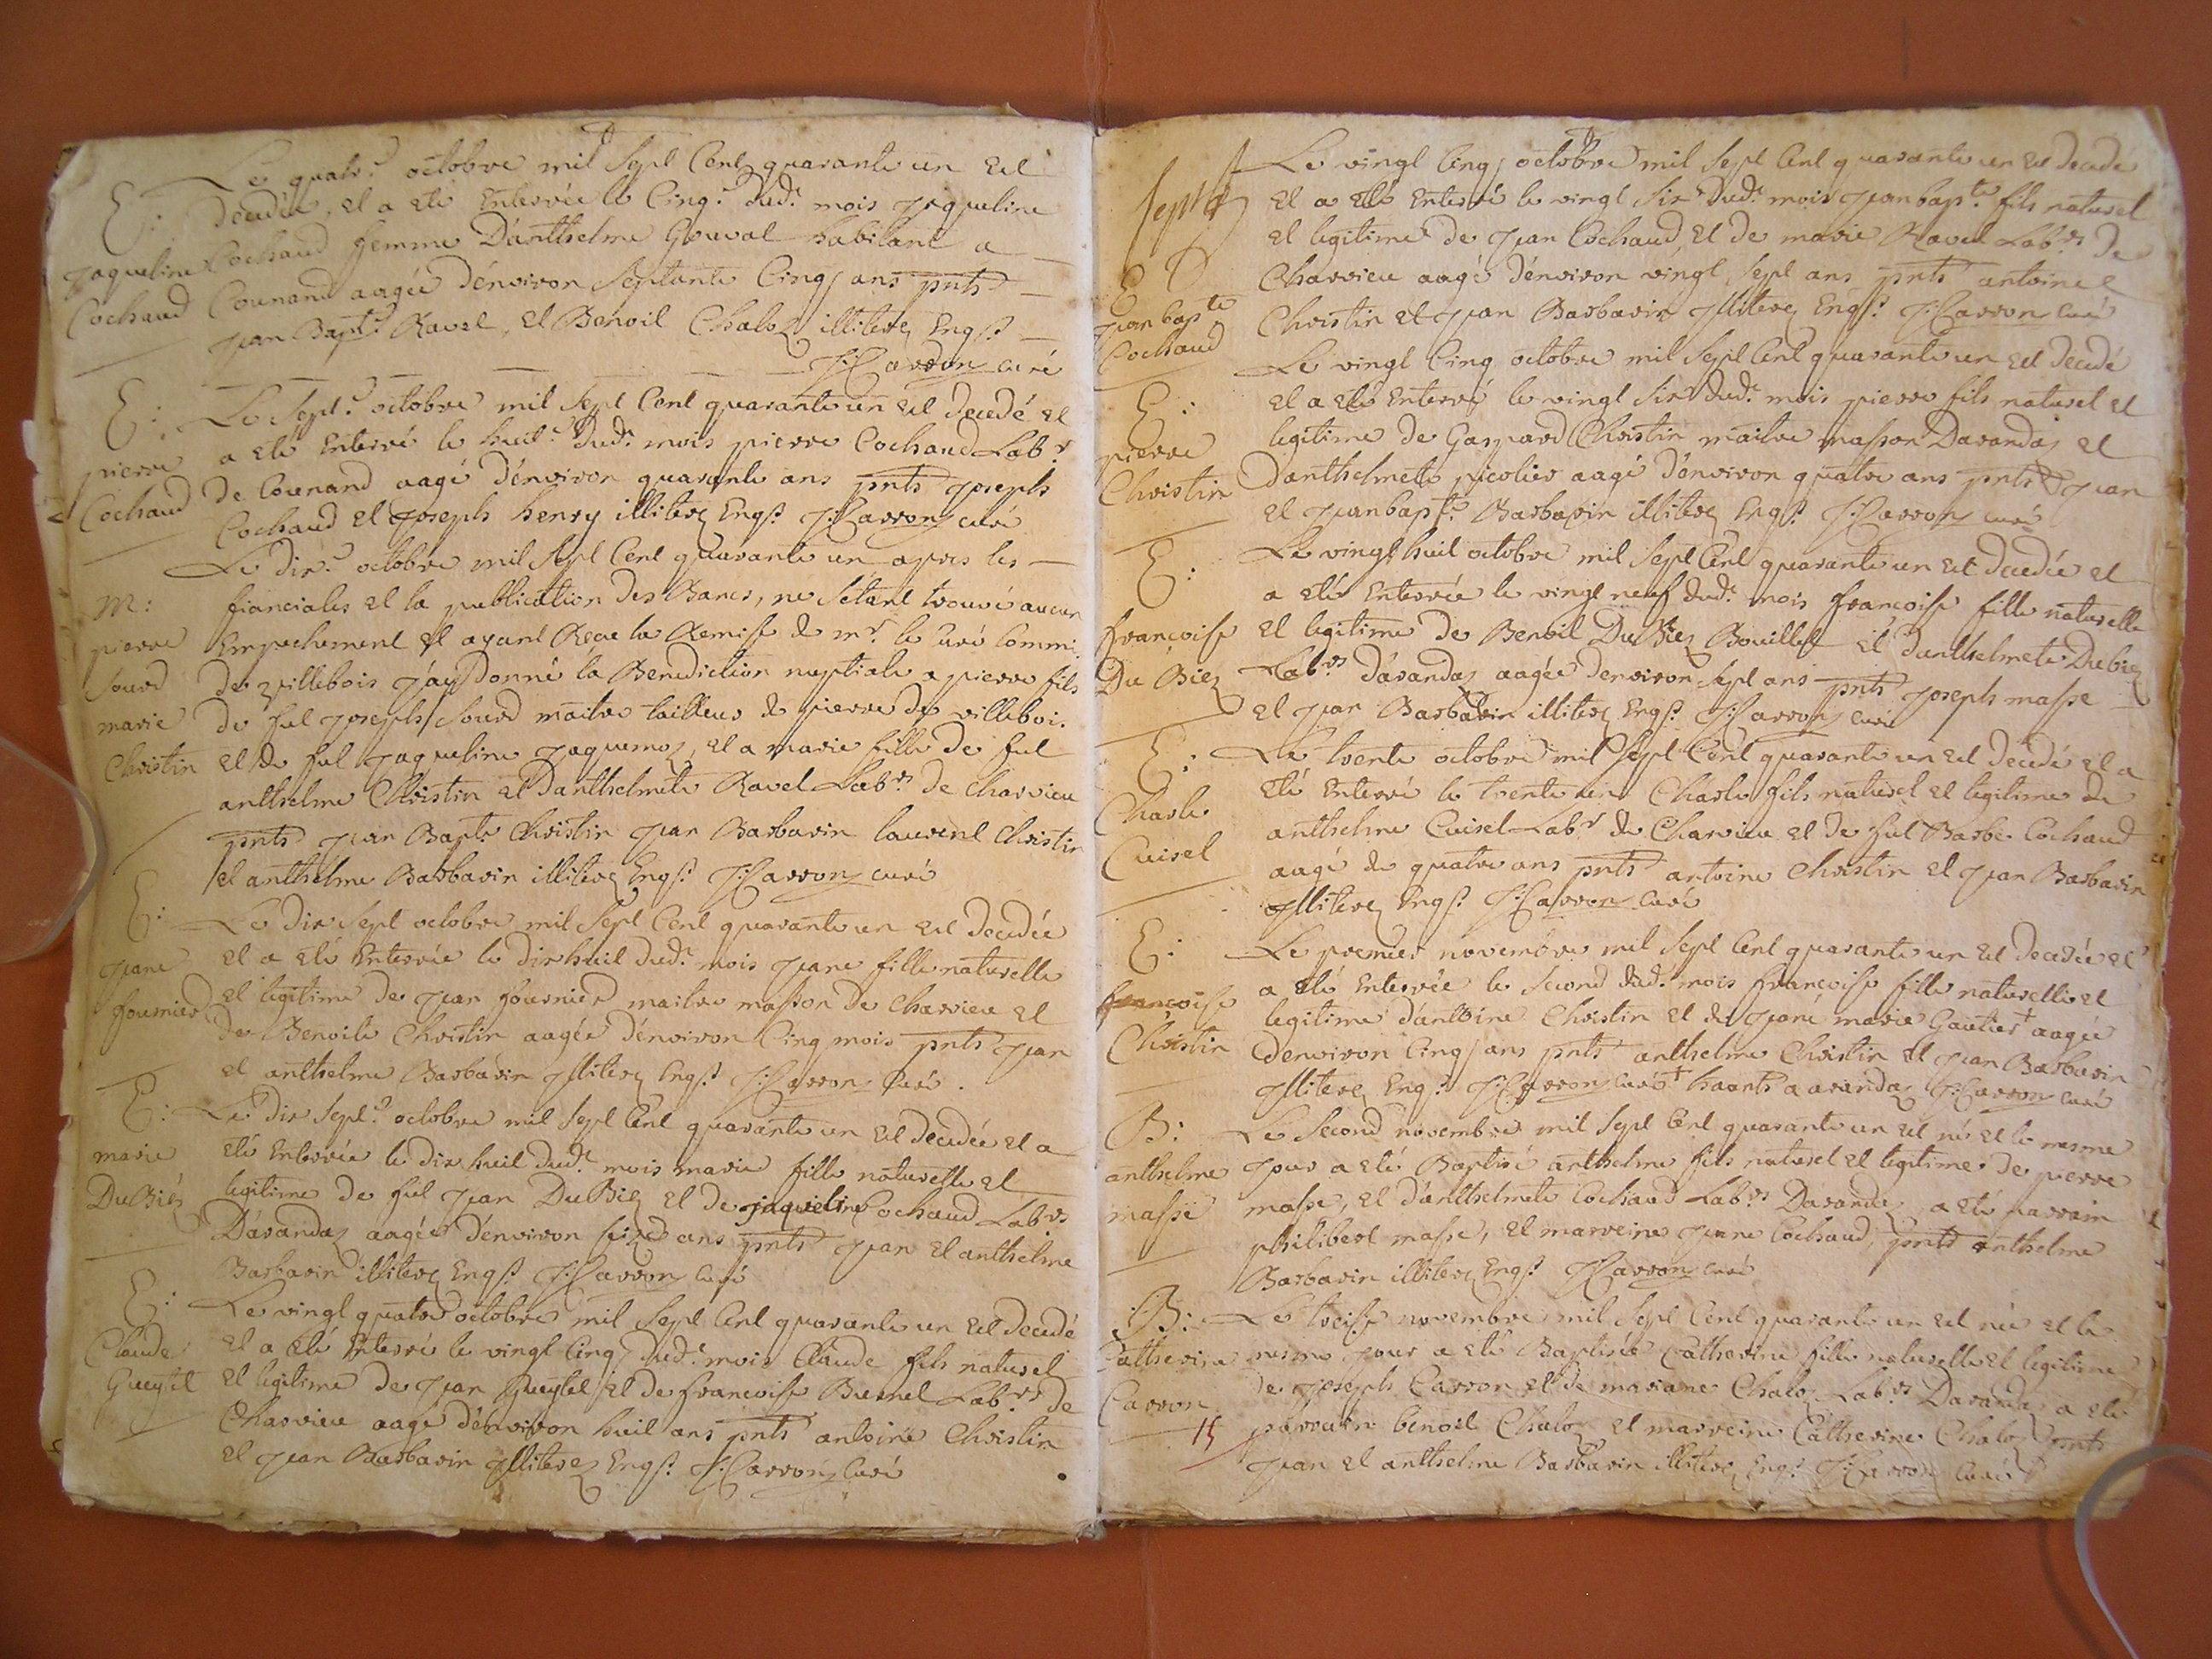 Le quatr.e octobre mil Sept Cent quarante un est
E: decedée, et a eté Enterrée le Cinq.e dud.t mois Jaqueline
Jaqueline Cochaud femme D'anthelme Gouval habitant a
Cochaud Counand aagée d'environ Septante Cinq ans pnts
Jean Bapt.e Ravel, et Benoit Chaloz illiterez Enq.s
J: Carron curé
E: Le Sept.e octobre mil Sept Cent quarante un est decedé et
a eté Enterré le huit.e dud.t mois pierre Cochaud Lab.r
pierre
Cochaud de Counand aagé d'environ quarante ans pnts Joseph
Cochaud et Joseph henry illiterez Enq.s J: Carron curé
Le dix.e octobre mil Sept Cent quarante un apres les
M: fianciales et la publication des Bancs, ne S'étant trouvé aucun
pierre Empechement et ayant Reçue la Remise de m.r le Curé Commi.
Sourd de villebois J'ay Donné la Benediction nuptiale a pierre fils
marie de fut Joseph Sourd maitre tailleur de pierre de villeboi.
Christin et de fut Jaqueline Jaquemoz, et a marie fille de fut
anthelme Christin et D'anthelmete Ravel Lab.rs de Charvieu
pnts Jean Bapt.e Christin Jean Barbarin laurent Christin
et anthelme Barbarin illiterez Enq.s J: Carron curé
E: Le dix Sept octobre mil Sept Cent quarante un est decedée
et a eté Enterrée le dix huit dud.t mois Jeane fille naturelle
Jeane
fournier et legitime de Jean fournier maitre masson de Charvieu et
de Benoite Christin aagée d'environ Cinq mois pnts Jean
et anthelme Barbarin Illiterez Enq.s J: Carron Curé.
E: Le dix Sept.e octobre mil Sept Cent quarante un est decedée et a
marie eté Enterrée le dix huit dud.t mois marie fille naturelle et
DuBiez legitime de fut Jean DuBiez et de jaqueline Cochaud Lab.rs
D'arandaz aagée d'environ seize ans pnts Jean et anthelme
Barbarin illiterez Enq.s J: Carron Curé
E: Le vingt quatre octobre mil Sept Cent quarante un est decedé
Claude et a eté Enterré le vingt Cinq dud.t mois Claude fils naturel
Gueytet et legitime de Jean Gueytet et de francoise Burnel Lab.rs de
Charvieu aagé d'environ huit ans pnts antoine Christin
et Jean Barbarin Illiterez Enq.s J: Carron Curé
Le vingt Cinq octobre mil Sept Cent quarante un est decedé
Sept.e et a eté Enterré le vingt Six dud.t mois Jean bapt.e fils naturel
et legitime de Jean Cochaud, et de marie Ravel Lab.rs de
E Charvieu aagé d'environ vingt, Sept ans pnts antoine
Jean bapte
Cochaud Christin et Jean Barbarin Illiterez Enq.s J: Carron Curé
Le vingt Cinq octobre mil Sept Cent quarante un est decedé
E: et a eté Enterré le vingt Six dud.t mois pierre fils naturel et
pierre legitime de Gaspard Christin maitre masson Darandaz et
Christin Danthelmete picolier aagé d'environ quatre ans pnts Jean
et Jean bapt.e Barbarin illiterez Enq.s J: Carron curé
E: Le vingt huit octobre mil Sept Cent quarante un est decedée et
a eté Enterrée le vingt neuf dud.t mois françoise fille naturelle
françoise et legitime de Benoit DuBiez Bouillet et danthelmete DuBiez
Du Biez Lab.rs d'arandaz aagée denviron Sept ans pnts Joseph masse
et Jean Barbarin illiterez Enq.s J: Carron Curé
E: Le trente octobre mil Sept Cent quarante un est decedé et a
Charle eté Enterré le trente un Charle fils naturel et legitime de
Cuisel anthelme Cuisel Lab.r de Charvieu et de fut Barbe Cochaud
aagé de quatre ans pnts antoine Christin et Jean Barbarin
Illiterez Enq.s J: Carron Curé
E: Le premier novembre mil Sept Cent quarante un est decedée et
francoise a eté Enterrée le Second dud.t mois francoise fille naturelle et
Christin legitime d'antoine Christin et de Jeane marie Gautier + aagée
denviron Cinq ans pnts anthelme Christin et Jean Barbarin
Illiterez Enq.s J: Carron Curé + haants a arandaz J: Carron curé
B: Le Second novembre mil Sept Cent quarante un est né et le mesme
anthelme Jour a eté Baptisé anthelme fils naturel et legitime de pierre
masse masse, et d'anthelmete Cochaud Lab.rs Darandaz a eté parrain
philibert masse, et marreine Jeane Cochaud, pnts anthelme
Barbarin illiterez Enq.s J: Carron curé
B: Le treise novembre mil Sept Cent quarante un est née et le
Catherine mesme Jour a eté Baptisée Catherine fille naturelle et legitime
Carron de Joseph Carron et de mariane Chaloz Lab.rs Darandaz a eté
15 parrain benoit Chaloz et marreine Catherine Chaloz pnts
Jean et anthelme Barbarin illiterez Enq.s J: Carron Curé